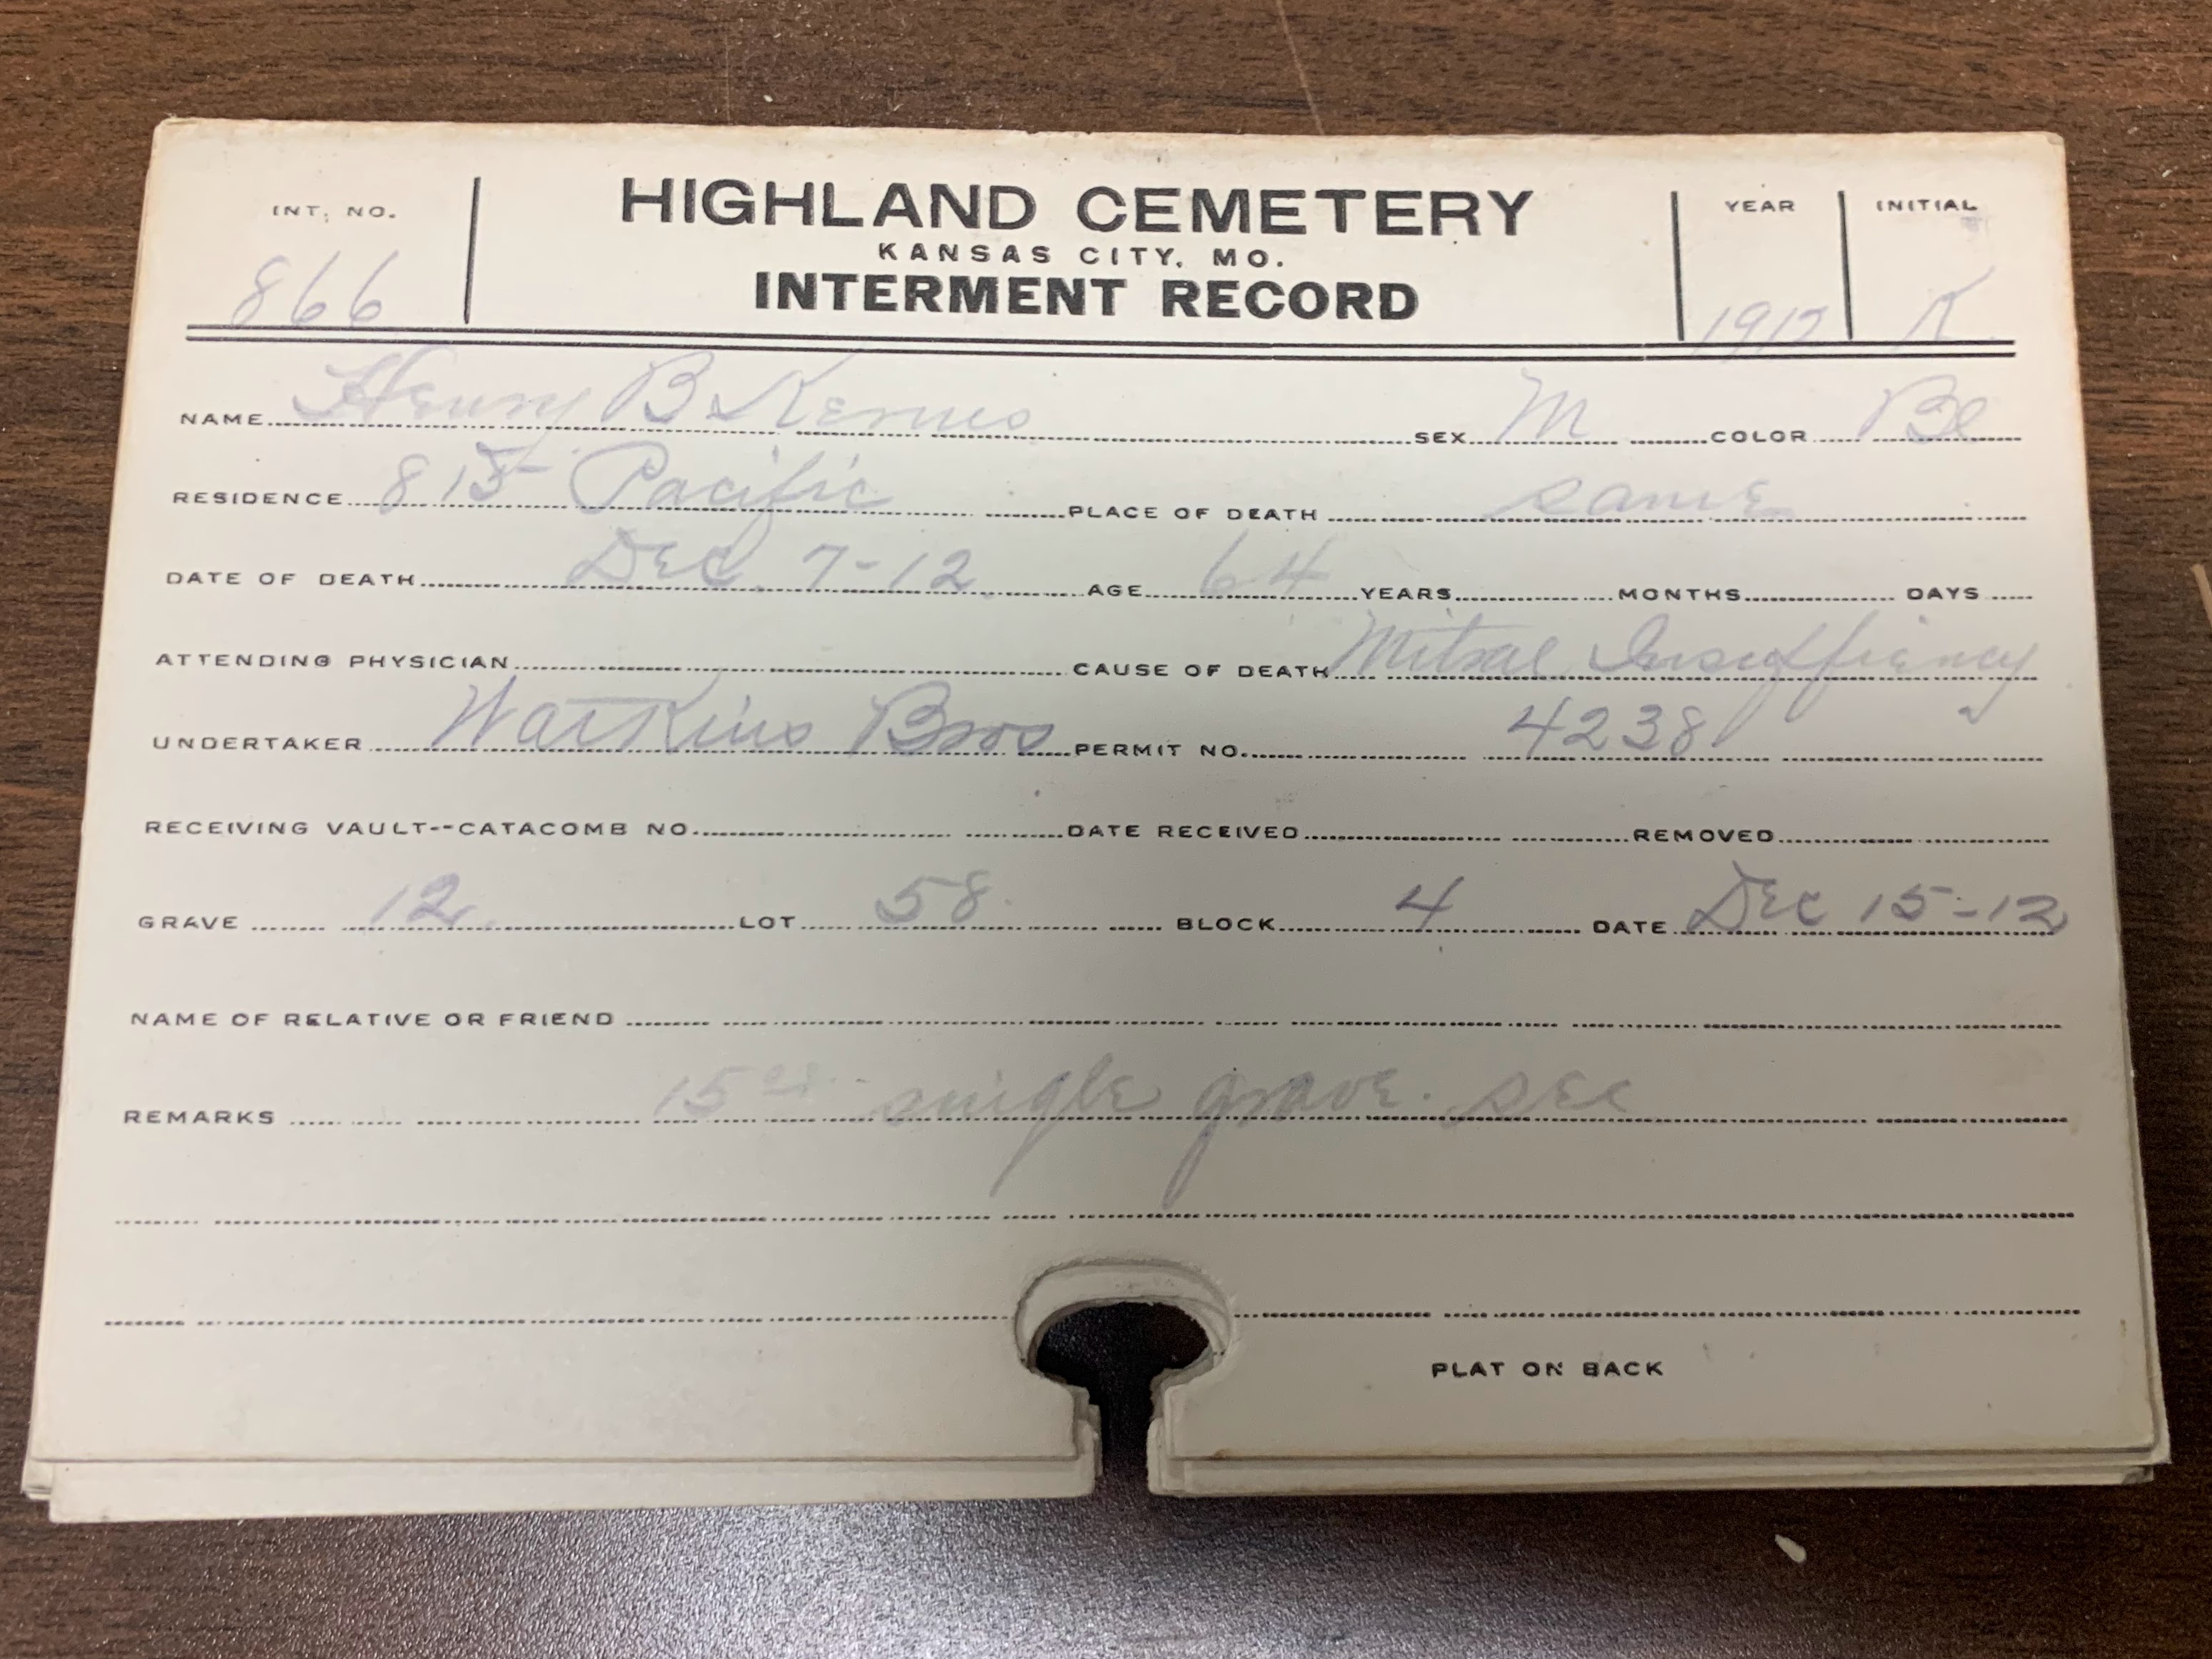 INT. NO. HIGHLAND CEMETERY YEAR INITIAL
KANSAS CITY, MO.
866 INTERMENT RECORD 1912 K
NAME Henry B Kerns SEX M COLOR Bl
RESIDENCE 815 Pacific PLACE OF DEATH same
DATE OF DEATH Dec. 7-12 AGE 64 YEARS MONTHS DAYS
ATTENDING PHYSICIAN CAUSE OF DEATH Mitral Insuffiency
UNDERTAKER Watkins Bros PERMIT NO. 4238
RECEIVING VAULT--CATACOMB NO. DATE RECEIVED REMOVED
GRAVE 12 LOT 58 BLOCK 4 DATE Dec 15-12
NAME OF RELATIVE OR FRIEND
REMARKS single grave. sec
PLAT ON BACK